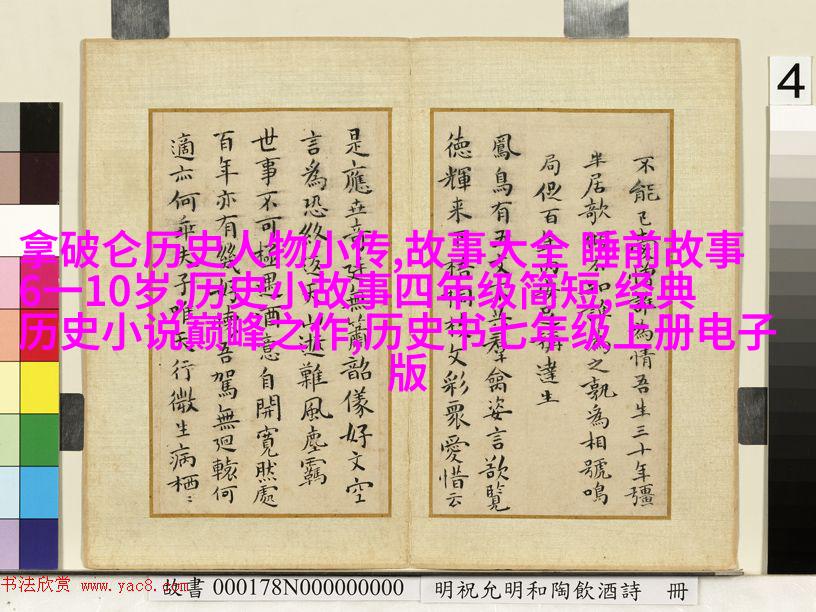 4
拿破仑历史人物小传,故事大全 睡前故事
6一10岁,历史小故事四年级简短,经典
历史小说巅峰之作,历史书七年级上册电子
版
不能已 為情吾生三十年彊
半居歌 為之孰為相號鳴
局促百年 達生
鳳鳥有 羣禽姿言欲覽
徳輝来 文彩眾愛惜云
是應 無簫韶儀好文空
言為恐終 難風塵羈
世事不可極遇酒意自開寛然處
百年亦有幾 吾駕無迴轅何
適 何乗夫子 天行微生病栖
书法欣赏 www.yac8.com
故書 000178N000000000
明祝允明和陶飲酒詩 冊